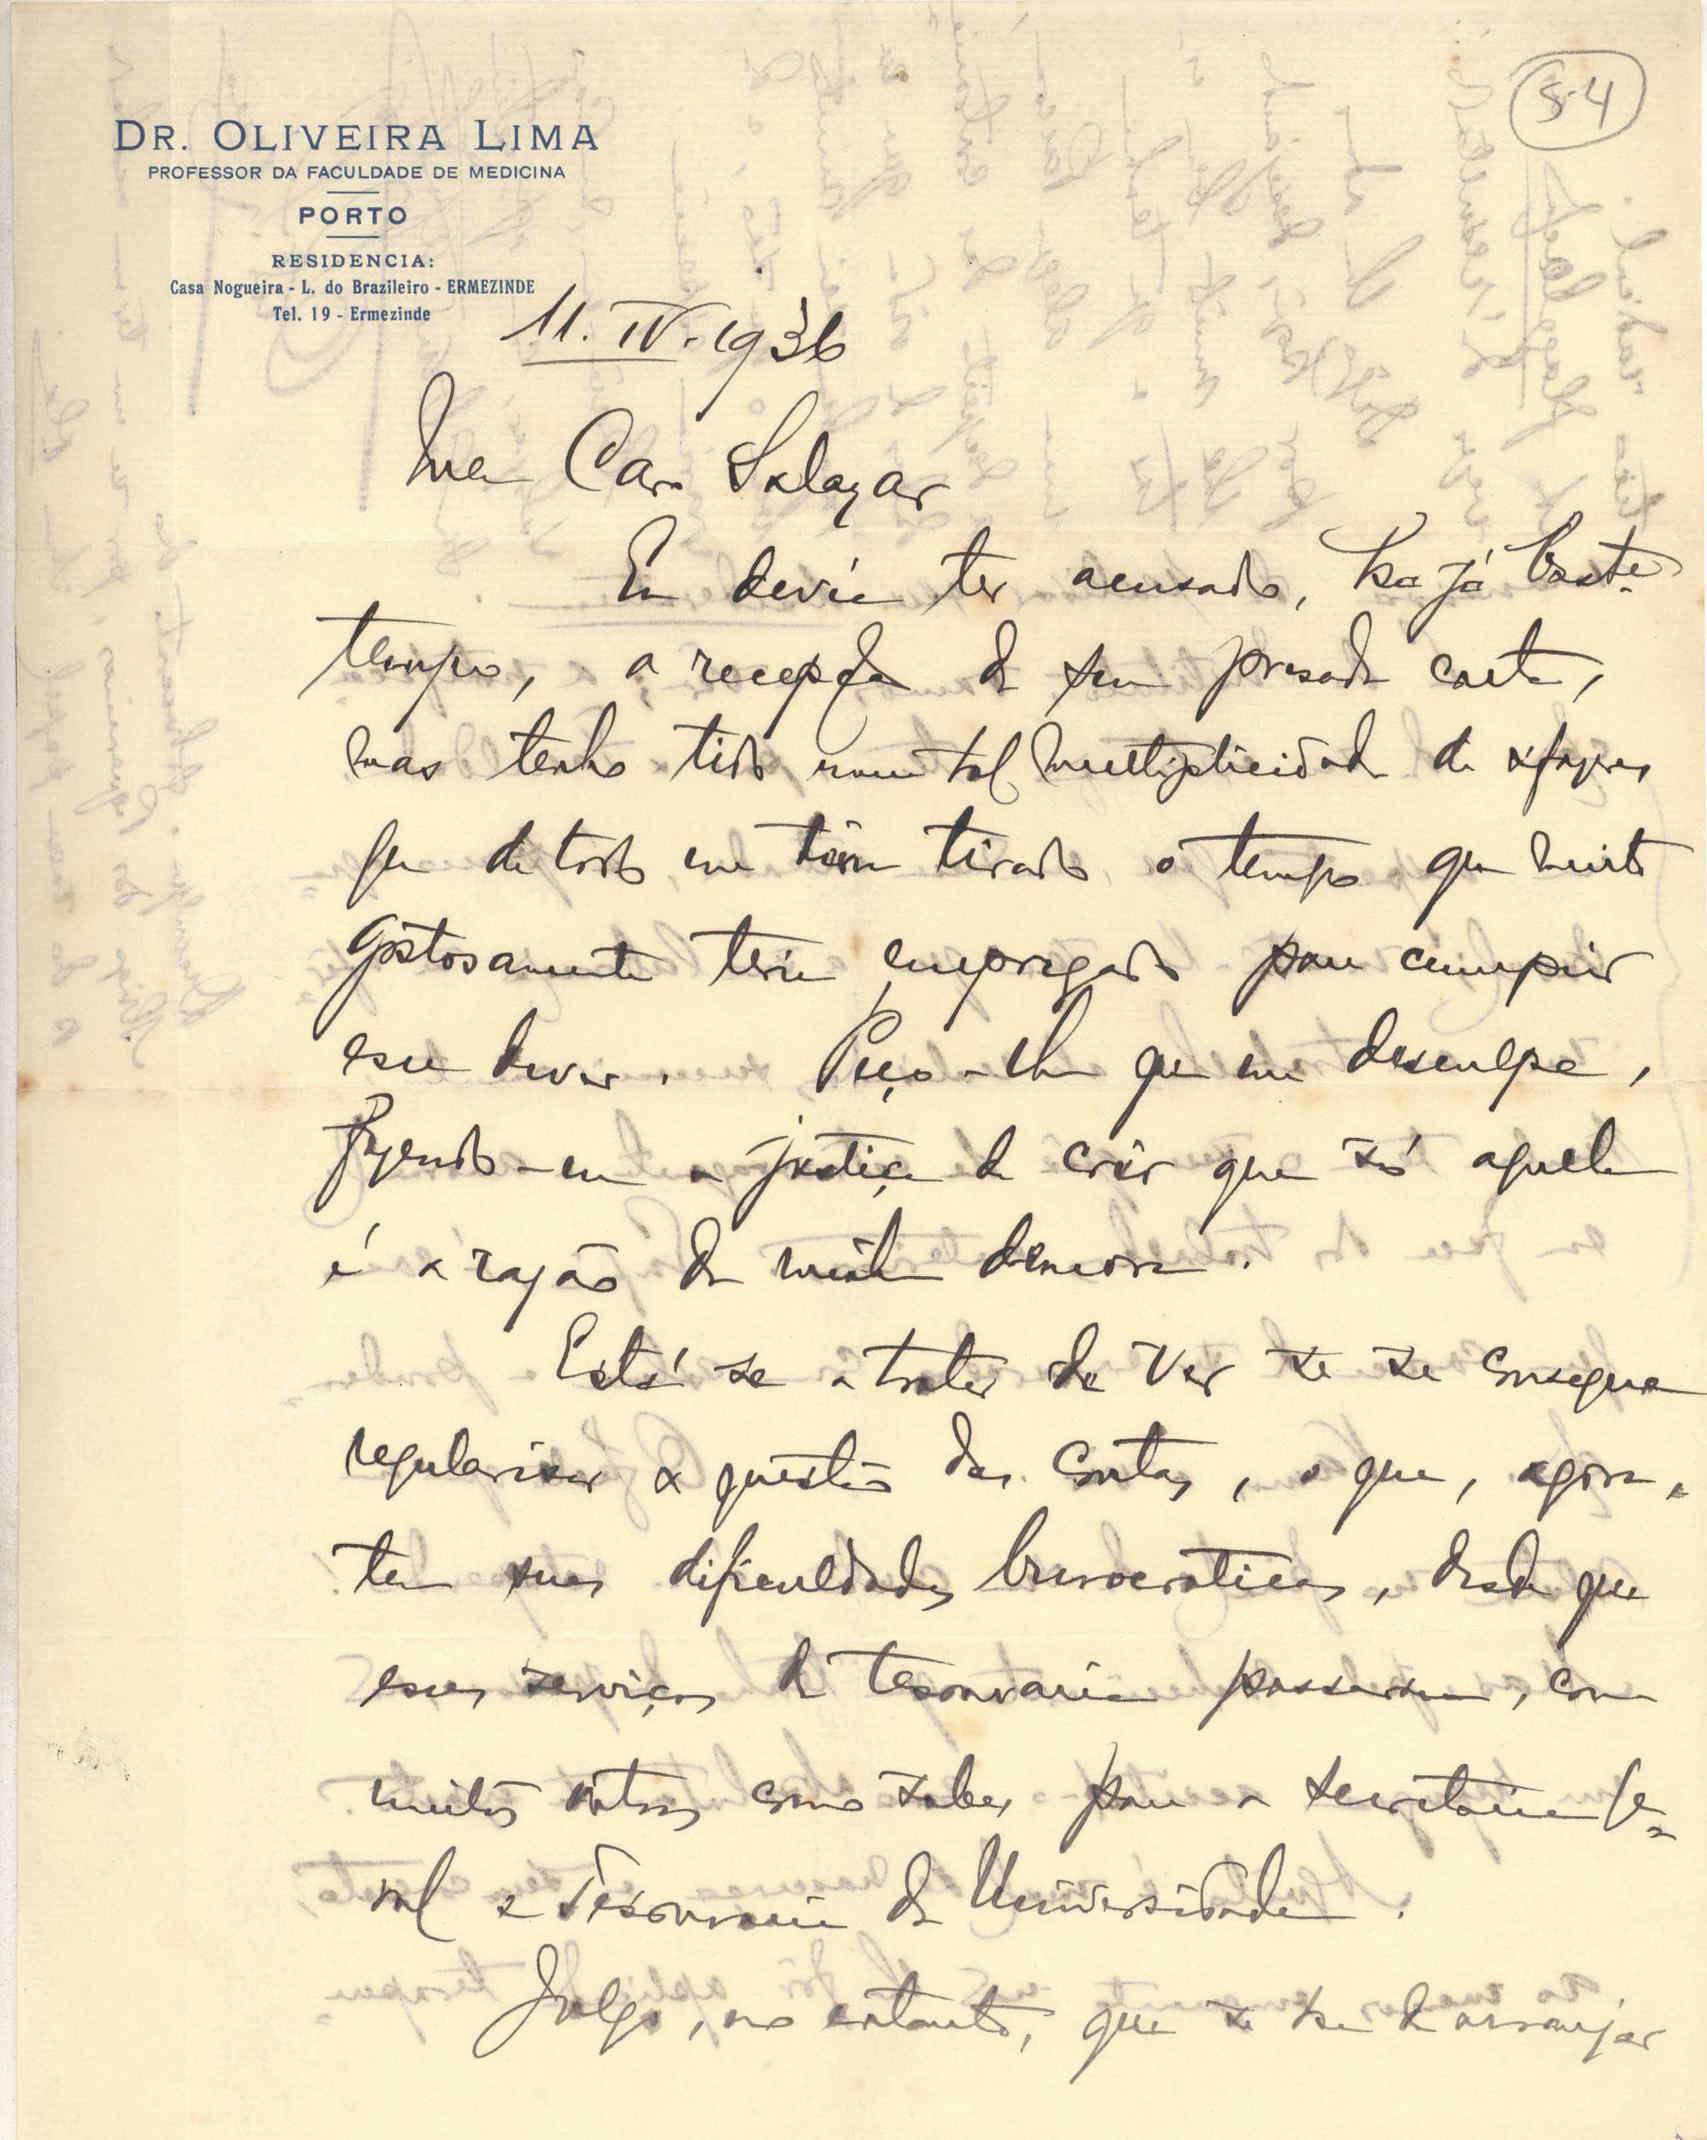 54
DR. OLIVEIRA LIMA
PROFESSOR DA FACULDADE DE MEDICINA
PORTO
RESIDENCIA:
Casa Nogueira - L. do Brazileiro - ERMEZINDE
Tel. 19 - Ermezinde
11. IV. 1936
Meu Caro Salazar
Eu devia ter acusado, ha já basto
tempo, a recepção da sua presada carta,
mas tenho tido uma tal multiplicidade de afazeres
que de todo me têem tirado o tempo que muito
gostosamente teria empregado para cumprir
esse dever. Peço-lhe que me desculpe,
fazendo-me a justiça de crêr que só aquela
é a razão da minha demora.
Está se a tratar de ver se se consegue
regularisar a questão das contas, o que, agora,
tem suas dificuldades burocraticas, desde que
esses serviços de tesouraria passaram, com
muitos outros como sabe, para a secretaria ge-
ral e Tesouraria da Universidade.
Julgo, no entanto, que se ha de arranjar